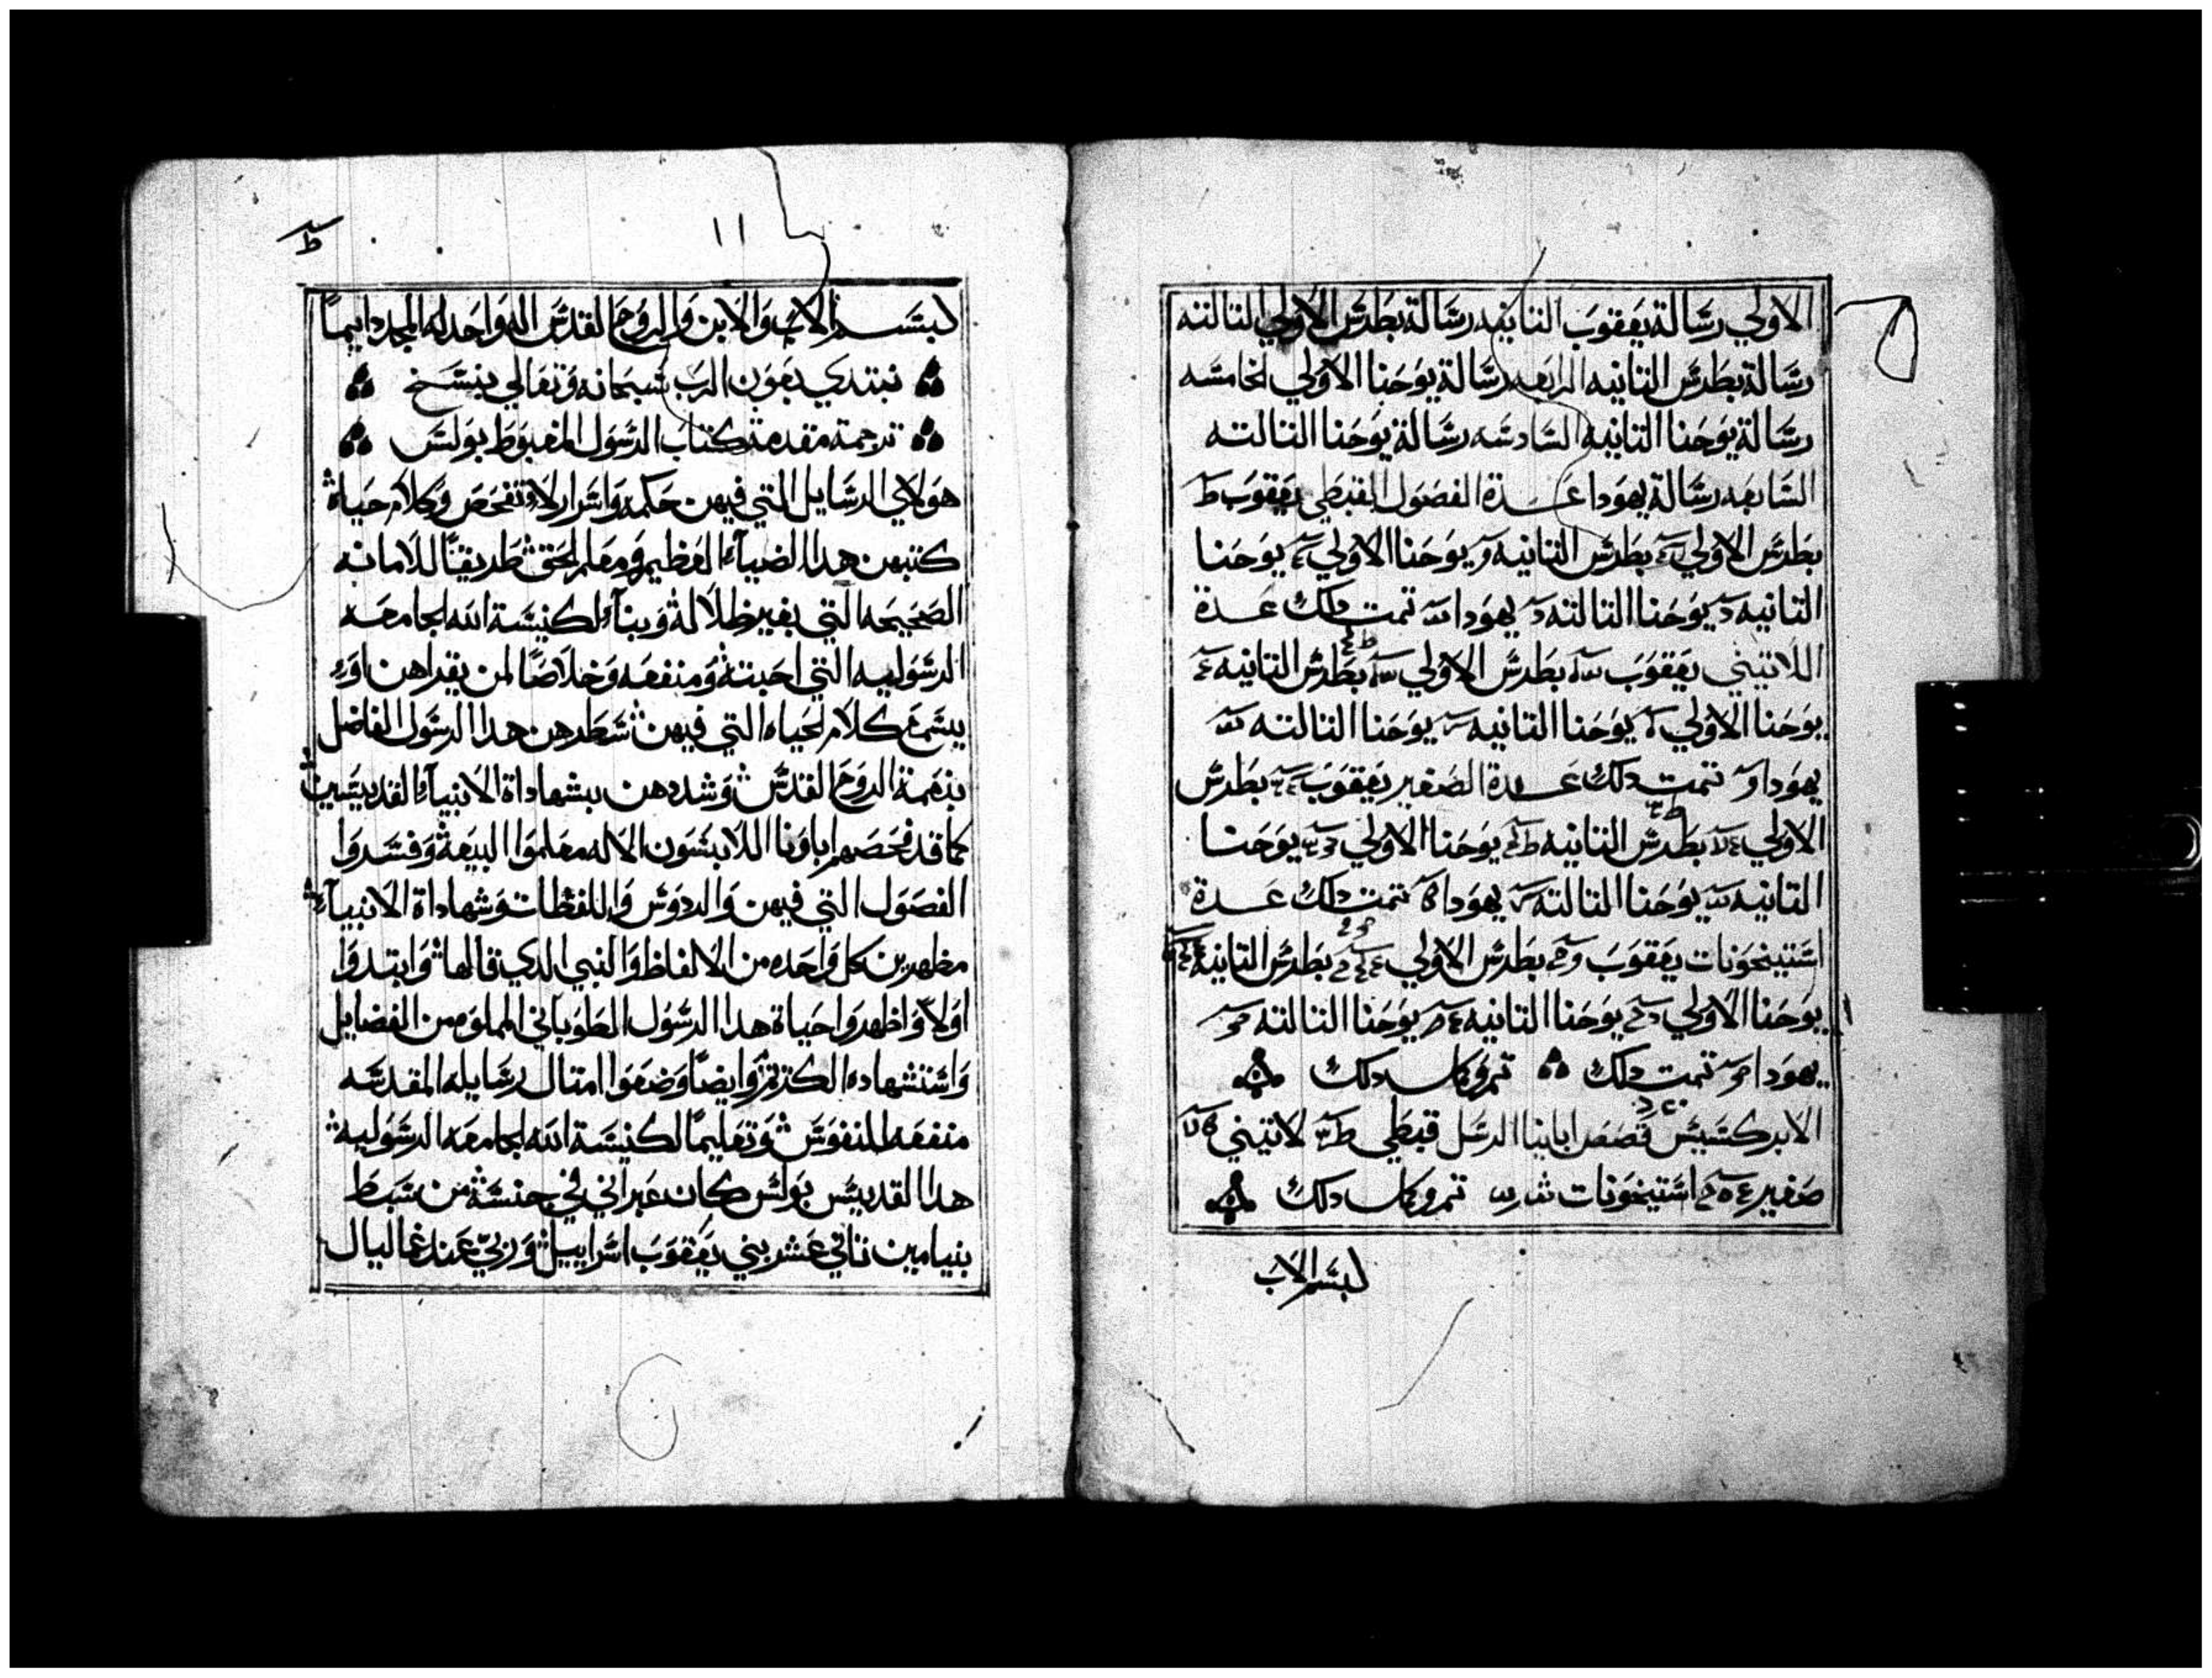 الاولي رسالة يعقوب التانيه رسالة بطرس الاولي التالته
رسالة بطرس التانيه الرابعه رسالة يوحنا الاولي الخامسه
رسالة يوحنا التانيه السادسه رسالة يوحنا التالته
السابعه رسالة يهودا عدة الفصول القبطي يعقوب ط
بطرس الاولي بطرس التانيه و يوحنا الاولي يوحنا
التانيه د يوحنا التالته د يهودا تمت دلك عدة
اللاتيني يعقوب بطرس الاولي بطرس التانيه
يوحنا الاولي يوحنا التانيه يوحنا التالته
يهودا و تمت دلك عدة الصغير يعقوب بطرس
الاولي بطرس التانيه يوحنا الاولي يوحنا
التانيه يوحنا التالته يهودا تمت دلك عدة
استيخونات يعقوب بطرس الاولي بطرس التانيه
يوحنا الاولي يوحنا التانيه يوحنا التالته
يهودا تمت دلك تم وكل دلك
الابركسيس قصص اباينا الرسل قبطي لاتيني
صغير استيخونات تم وكل دلك
بسم الاب
ط
١١
بسم الاب والابن والروح القدس اله واحد له المجد دايماً
نبتدي بعون الرب سبحانه وتعالي بنسخ
ترجمة مقدمة كتاب الرسول المغبوط بولس
هولاي الرسايل التي فيهن حكمه واسرار لا تفحص وكلام حياة
كتبهن هدا الضياء العظيم ومعلم الحق طريقاً للامانه
الصحيحه التي بغير ظلالة وبناء لكنيسة الله الجامعه
الرسوليه التي احبته ومنفعه وخلاصاً لمن يقراهن او
يسمع كلام الحياه التي فيهن سطرهن هدا الرسول الفاضل
بنعمة الروح القدس وشددهن بشهاداة الانبياء القديسين
كما قد فحصهم اباونا اللابسون الاله معلموا البيعة وفسروا
الفصول التي فيهن والروس واللفظات وشهاداة الانبياء
مظهرين كل واحده من الالفاظ والنبي الدي قالها وابتدوا
اولاً واظهروا حياة هدا الرسول الطوباني المملوه من الفضايل
واستشهاده الكريم وايضاً وضعوا امتال رسايله المقدسه
منفعه للنفوس وتعليماً لكنيسة الله الجامعه الرسوليه
هدا القديس بولس كان عبراني في جنسة من سبط
بنيامين تاني عشر بني يعقوب اسراييل وربي عند غماليال